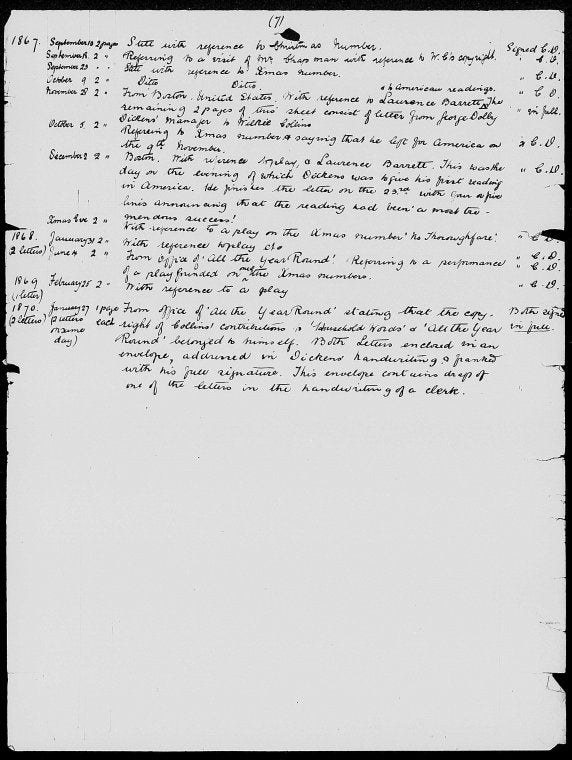 (7)
1867. September 10 2 pages Still with reference to Christmas Number. Signed C.D.
September 2 " Referring to a visit of Mr Chapman with reference to W.C's copyright. " C.D.
September 23 " " Still with reference to Xmas number. " C.D.
October 9 2 " Ditto Ditto & American readings. " C.D.
November 28 2 " From Boston, United States. With reference to Laurence Barrett, The
remaining 2 pages of this sheet consist of letter from George Dolby " in full.
Dickens' Manager to Wilkie Collins
October 5, 2 " Referring to Xmas number & saying that he left for America on " C.D.
the 9th November.
December 2 2 " Boston. With reference to play, & Laurence Barrett. This was the " C.D.
day on the evening of which Dickens was to give his first reading
in America. He finishes the letter on the 23rd with four or five
lines announcing that the reading had been 'a most tre-
mendous success!'
Xmas Eve 2 " With reference to a play on the Xmas number 'No Thoroughfare' " C.D.
1868. January 31 2 " With reference to play &c " C.D.
2 letters) June 4 2 " From Office of 'All the Year Round'. Referring to a performance " C.D.
of a play founded on one of the Xmas numbers.
1869 February 25 2 " With reference to a play " C.D.
(1 letter)
1870. January 27 1 page From office of 'All the Year Round' stating that the copy- Both signed
(2 letters) (2 letters each right of Collins' contributions to 'Household Words' & 'All the Year in full.
on same Round' belonged to himself. Both Letters enclosed in an
day) envelope, addressed in Dickens' handwriting & franked
with his full signature. This envelope contains draft of
one of the letters in the handwriting of a clerk.